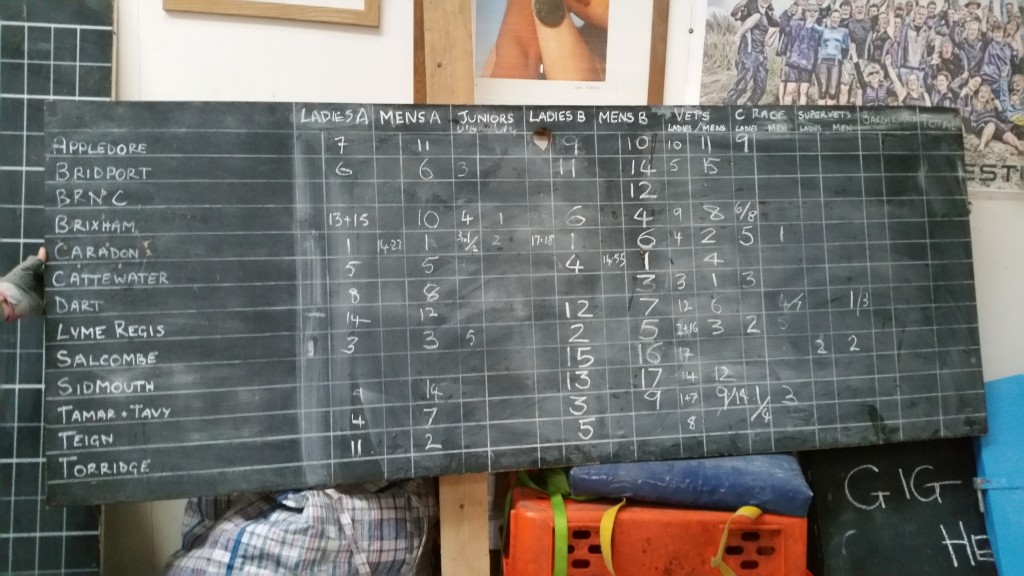 LADIES A MENS A JUNIORS LADIES B MENS B VETS C RACE SUPERVETS
LADIES / MENS LADIES MEN LADIES MEN
APPLEDORE 7 11 9 10 10 11 9
BRIDPORT 6 6 3 11 14 5 15
BRNC 12
BRIXHAM 13+15 10 4 1 6 4 9 8 6/8
CARADON 1 14.27 1 2 17.18 1 6 4 2 5 1
CATTEWATER 5 5 4 14.55 1 4
DART 8 8 3 3 1 3
LYME REGIS 14 12 12 7 12 6 1/3
SALCOMBE 3 3 5 2 5 3 2 2 2
SIDMOUTH 15 16 17
TAMAR + TAVY 9 14 13 17 14 12
TEIGN 4 7 3 9 1+7 9/14 1/4 3
TORRIDGE 11 2 5 8
GIG
HE